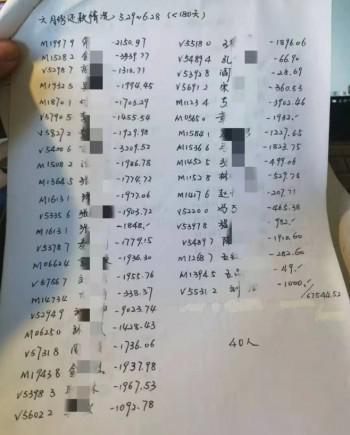 六月份还款情况 52906.28 (<180天)
M19979 -2150.97
M15282 -3339.77
V52987 -1318.71
M19325 -1994.45
M18701 -1703.29
V67905 -1455.54
V5827 -1929.98
V54006 -3209.52
M15082 -1986.78
M13645 张 -1774.72
M16131 -1977.06
V53356 张 -1903.72
M16131 -1848.-
V53787 -1779.15
M06624 -1936.30
V67567 -1955.76
M14734 -338.37
V52949 -9023.74
M06250 -1428.43
V67318 周 -1736.06
M19438 -1937.98
V53983 -1967.53
V56022 -1092.78
V55180 -1896.06
V54894 孔 -66.90
V53928 -28.69
V56912 宋 -360.53
M11234 -3902.46
M03650 -1932.-
M15841 -1227.65
M15366 -1823.75
M14525 张 -499.06
M11528 -529.78
M14176 赵 -207.71
V52200 冯 -465.38
V53978 -982.-
V54397 陈 -1910.60
M12687 -282.60
M13945 -49.-
V55312 刘 -1000.-
67544.52
40人